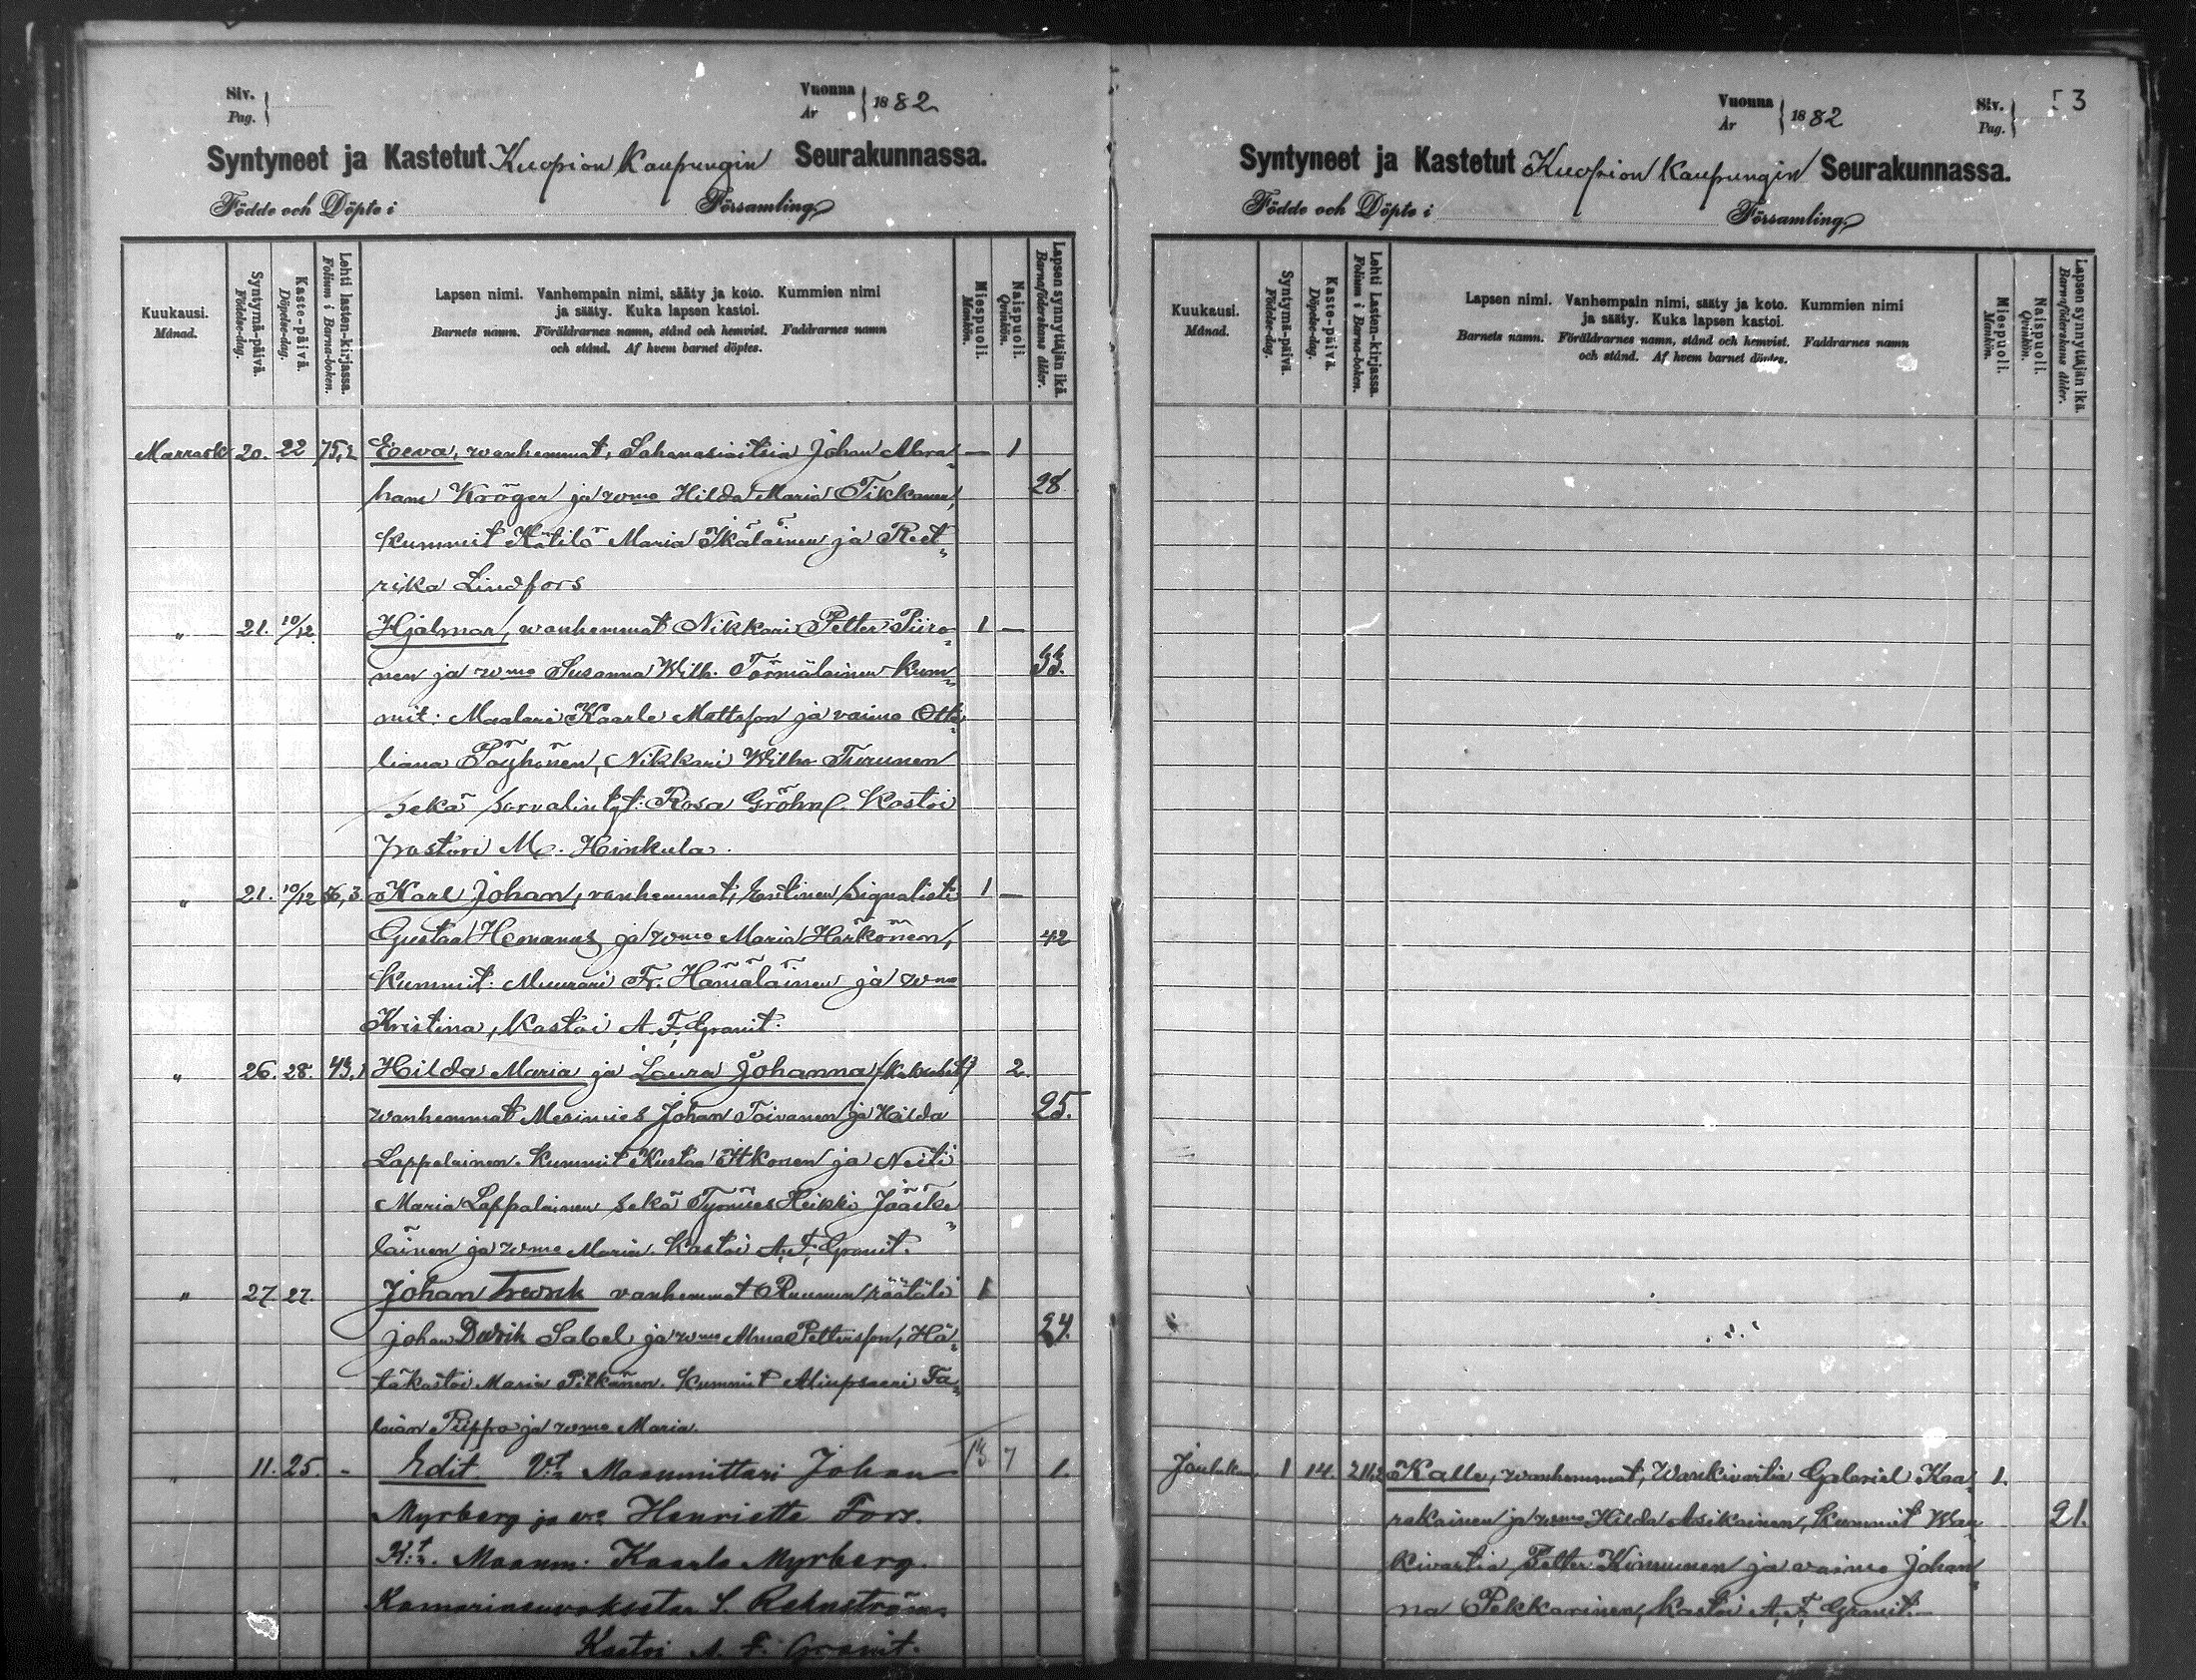 Siv.
Pag.
Vuonna
År
1882
Syntyneet ja Kastetut Kuopion Kaupungin Seurakunnassa.
Födde och Döpte i Församling
Kuukausi.
Månad.
Syntymä-päivä.
Födelse-dag.
Kaste-päivä.
Döpelse-dag.
Lehti lasten-kirjassa.
Folium i Barna-boken.
Lapsen nimi. Vanhempain nimi, sääty ja koto. Kummien nimi
ja sääty. Kuka lapsen kastoi.
Barnets namn. Föräldrarnes namn, stånd och hemvist. Faddrarnes namn
och stånd. Af hvem barnet döptes.
Miespuoli.
Mankön.
Naispuoli.
Qvinkön.
Lapsen synnyttäjän ikä.
Barnaföderskans ålder.
Marrask 20. 22 75,2 Eeva, wanhemmat, Johan Abra — 1
ham Kröger ja wmo Hilda Maria Tikkanen, 28
Kummit Kätilö Maria Ikäläinen ja Reet
rika Lindfors
" 21. 10/12. Hjalmar, wanhemmat Nikkari Petter Piiro 1 —
nen ja wmo Susanna Wilh. Törmäläinen Kum 33.
mit: Maalari Kaarle Mattsson ja vaimo Otte
liana Pöyhönen, Nikkari Wilh. Turunen
sekä Rosa Gröhn. Kastoi
pastori M. Hinkula.
" 21. 10/12 56,3 Karl Johan, vanhemmat, Entinen Signalisti 1 —
Gustaa ja wmo Maria Härkönen, 42
Kummit: Muurari Fr. Hämäläinen ja wmo
Kristina, Kastoi A. F. Granit.
" 26. 28. Hilda Maria ja Laura Johanna (Kakoset) 2.
wanhemmat Merimies Johan Toivanen ja Hilda 25.
Lappalainen. Kummit Kustaa Itkonen ja Neiti
Maria Lappalainen sekä Työmies Heikki Jääske
läinen ja wmo Maria. Kastoi A. F. Granit.
" 27. 27. Johan Fredrik vanhemmat Ruunun räätäli 1
Johan Dedrik Sabel ja wmo Alma Pettersson, Hä 24.
täkastoi Maria Pitkänen. Kummit Aliupseeri Ta
Piippo ja wmo Maria.
" 11. 25. - Edit. V:t Maanmittari Johan 13 7 1.
Myrberg ja wo Henriette Fors.
K:t. Maanm: Kaarlo Myrberg.
S. Rehnström.
Kastoi A. F. Granit.
Vuonna
År
1882
Siv.
Pag.
53
Syntyneet ja Kastetut Kuopion Kaupungin Seurakunnassa.
Födde och Döpte i Församling
Kuukausi.
Månad.
Syntymä-päivä.
Födelse-dag.
Kaste-päivä.
Döpelse-dag.
Lehti Lasten-kirjassa.
Folium i Barna-boken.
Lapsen nimi. Vanhempain nimi, sääty ja koto. Kummien nimi
ja sääty. Kuka lapsen kastoi.
Barnets namn. Föräldrarnes namn, stånd och hemvist. Faddrarnes namn
och stånd. Af hvem barnet döptes.
Miespuoli.
Mankön.
Naispuoli.
Qvinkön.
Lapsen synnyttäjän ikä.
Barnaföderskans ålder.
Jouluku. 1 14. Kalle, wanhemmat, Wankivartia Gabriel Kaa 1.
rakainen ja wmo Hilda Asikainen, Kummit Wan 21.
kivartia Petter Kinnunen ja vaimo Johan
na Pekkarinen, Kastoi A. F. Granit.